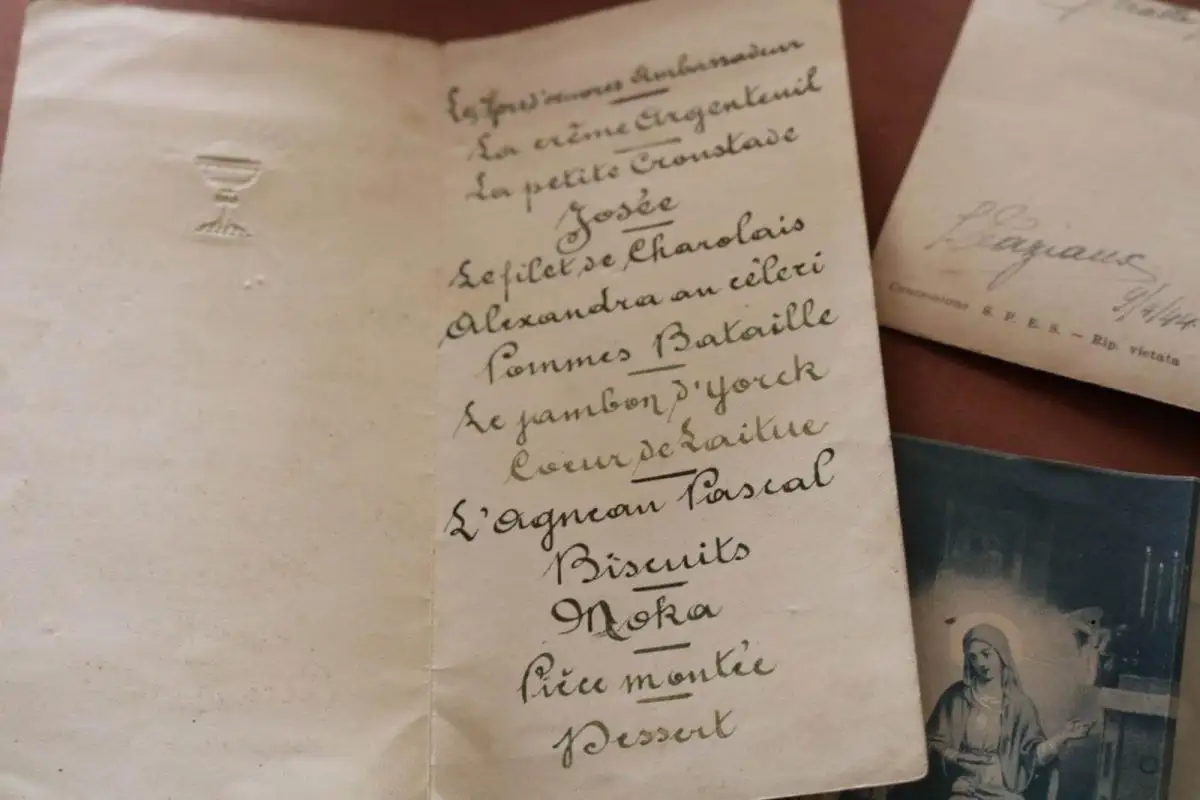 Les Hors d'œuvres Ambassadeur
La crême Argenteuil
La petite Croustade
Josée
Le filet de Charolais
Alexandra au céleri
Pommes Bataille
Le jambon d'Yorck
Coeur de Laitue
L'Agneau Pascal
Biscuits
Moka
Pièce montée
Dessert
9/4/44
Concessione S. P. E. S. — Rip. vietata